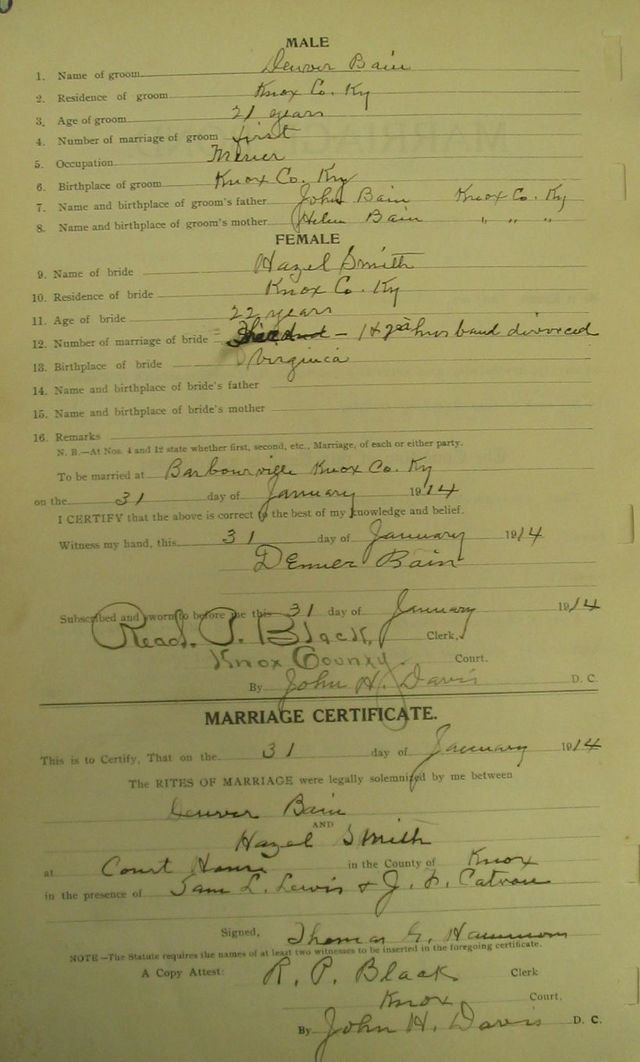 MALE
1. Name of groom Denver Bain
2. Residence of groom Knox Co. Ky
3. Age of groom 21 years
4. Number of marriage of groom first
5. Occupation Miner
6. Birthplace of groom Knox Co. Ky
7. Name and birthplace of groom's father John Bain Knox Co. Ky
8. Name and birthplace of groom's mother Helen Bain " " "
FEMALE
9. Name of bride Hazel Smith
10. Residence of bride Knox Co. Ky
11. Age of bride 22 years
12. Number of marriage of bride - 1 & 2nd husband divorced
13. Birthplace of bride Virginia
14. Name and birthplace of bride's father
15. Name and birthplace of bride's mother
16. Remarks
N. B.—At Nos. 4 and 12 state whether first, second, etc., Marriage, of each or either party.
To be married at Barbourville Knox Co. Ky
on the 31 day of January 1914
I CERTIFY that the above is correct to the best of my knowledge and belief.
Witness my hand, this 31 day of January 1914
Denver Bain
Subscribed and sworn to before me this 31 day of January 1914
Read. P. Black Clerk,
Knox County. Court.
By John H. Davis D. C.
MARRIAGE CERTIFICATE.
This is to Certify, That on the 31 day of January 1914
The RITES OF MARRIAGE were legally solemnized by me between
Denver Bain
AND
Hazel Smith
at Court House in the County of Knox
in the presence of Sam L. Lewis & J. F. Catron
Signed, Thomas G. Hammons
NOTE—The Statute requires the names of at least two witnesses to be inserted in the foregoing certificate.
A Copy Attest: R. P. Black Clerk
Knox Court,
By John H. Davis D. C.